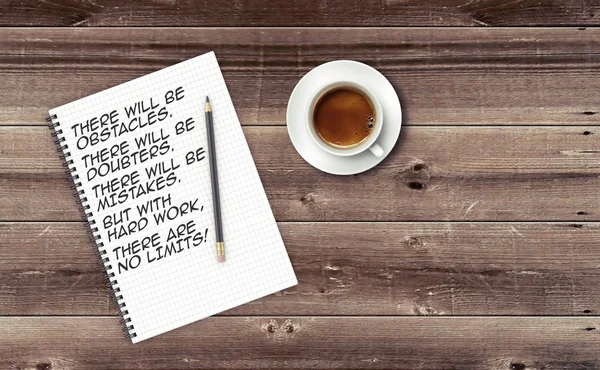 THERE WILL BE
OBSTACLES.
THERE WILL BE
DOUBTERS.
THERE WILL BE
MISTAKES.
BUT WITH
HARD WORK,
THERE ARE
NO LIMITS!